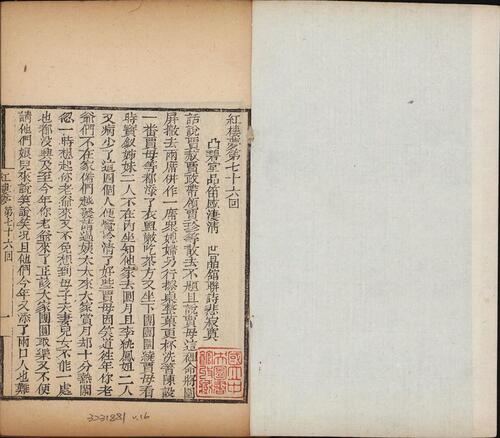 紅樓夢第七十六回
凸碧堂品笛感淒清 凹晶舘聯詩悲寂寞
話說賈赦賈政帶領賈珍等散去不題且說賈母這裡命將圍
屏撤去兩席併作一席衆媳婦另行擦桌整菓更杯洗箸陳設
一番賈母等都添了衣盥漱吃茶方又坐下團團圍繞賈母看
時寶釵姊妹二人不在內坐知他家去圓月且李紈鳳姐二人
又病少了這四個人便覺冷清了好些賈母因笑道往年你老
爺們不在家偺們越發請過姨太太來大家賞月却十分熱鬧
忽一時想起你老爺來又不免想到母子夫妻兒女不能一處
也都沒興及至今年你老爺來了正該大家團圓取樂又不便
請他們娘兒來說笑說笑況且他們今年又添了兩口人也難
紅樓夢 第七十六回
一
3231881 v.16